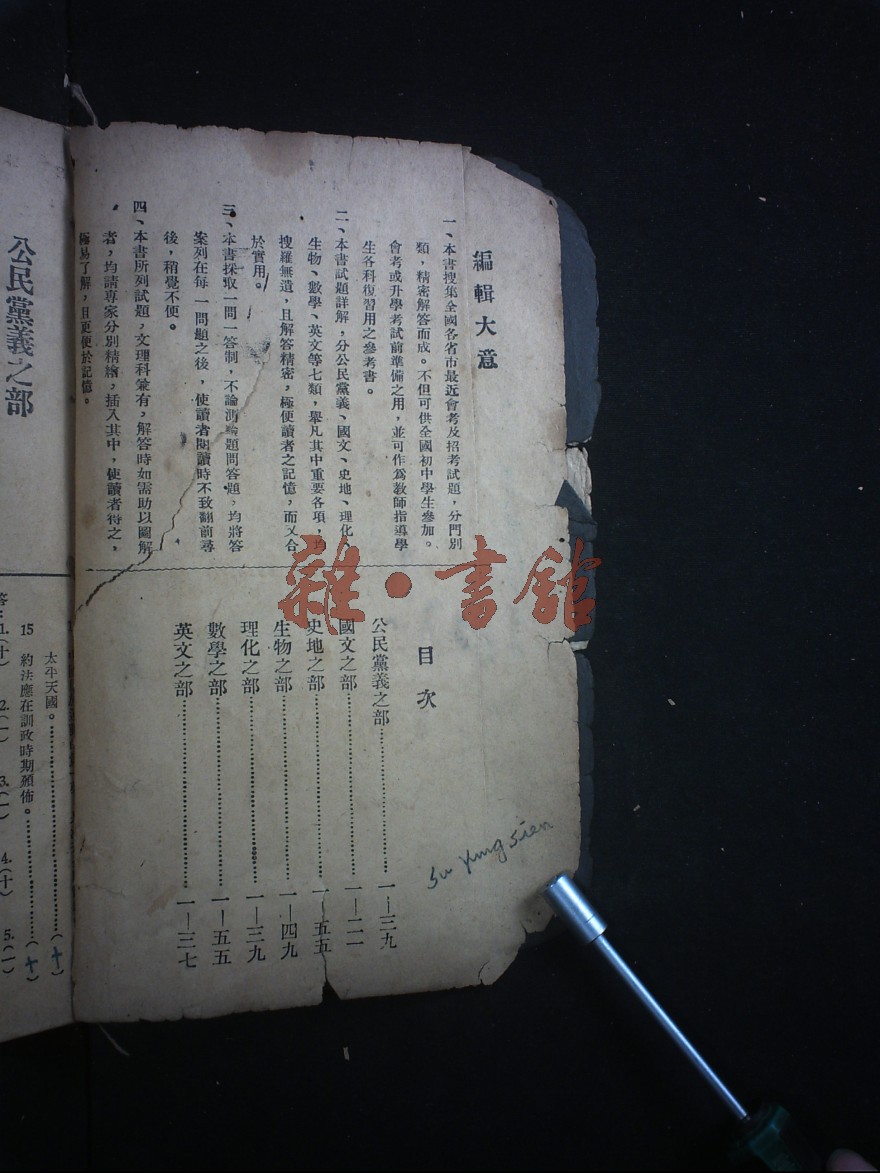 編輯大意
一、本書搜集全國各省市最近會考及招考試題，分門別
類，精密解答而成。不但可供全國初中學生參加。
會考或升學考試前準備之用，並可作爲教師指導學
生各科復習用之參考書。
二、本書試題詳解，分公民黨義、國文、史地、理化
生物、數學、英文等七類，舉凡其中重要各項，均
搜羅無遺，且解答精密，極便讀者之記憶，而又合
於實用。
三、本書採取一問一答制，不論測驗題問答題，均將答
案列在每一問題之後，使讀者閱讀時不致翻前尋
後，稍覺不便。
四、本書所列試題，文理科兼有，解答時如需助以圖解
者，均請專家分別精繪，插入其中，使讀者得之，
極易了解，且更便於記憶。
目次
公民黨義之部……一—三九
國文之部……一—二一
史地之部……一—五五
生物之部……一—四九
理化之部……一—三九
數學之部……一—五五
英文之部……一—三七
Su Yung Sien
公民黨義之部
太平天國。……(十)
15 約法應在訓政時期頒佈。……(十)
答：1.(十) 2.(一) 3.(一) 4.(十) 5.(一)
雜·書館